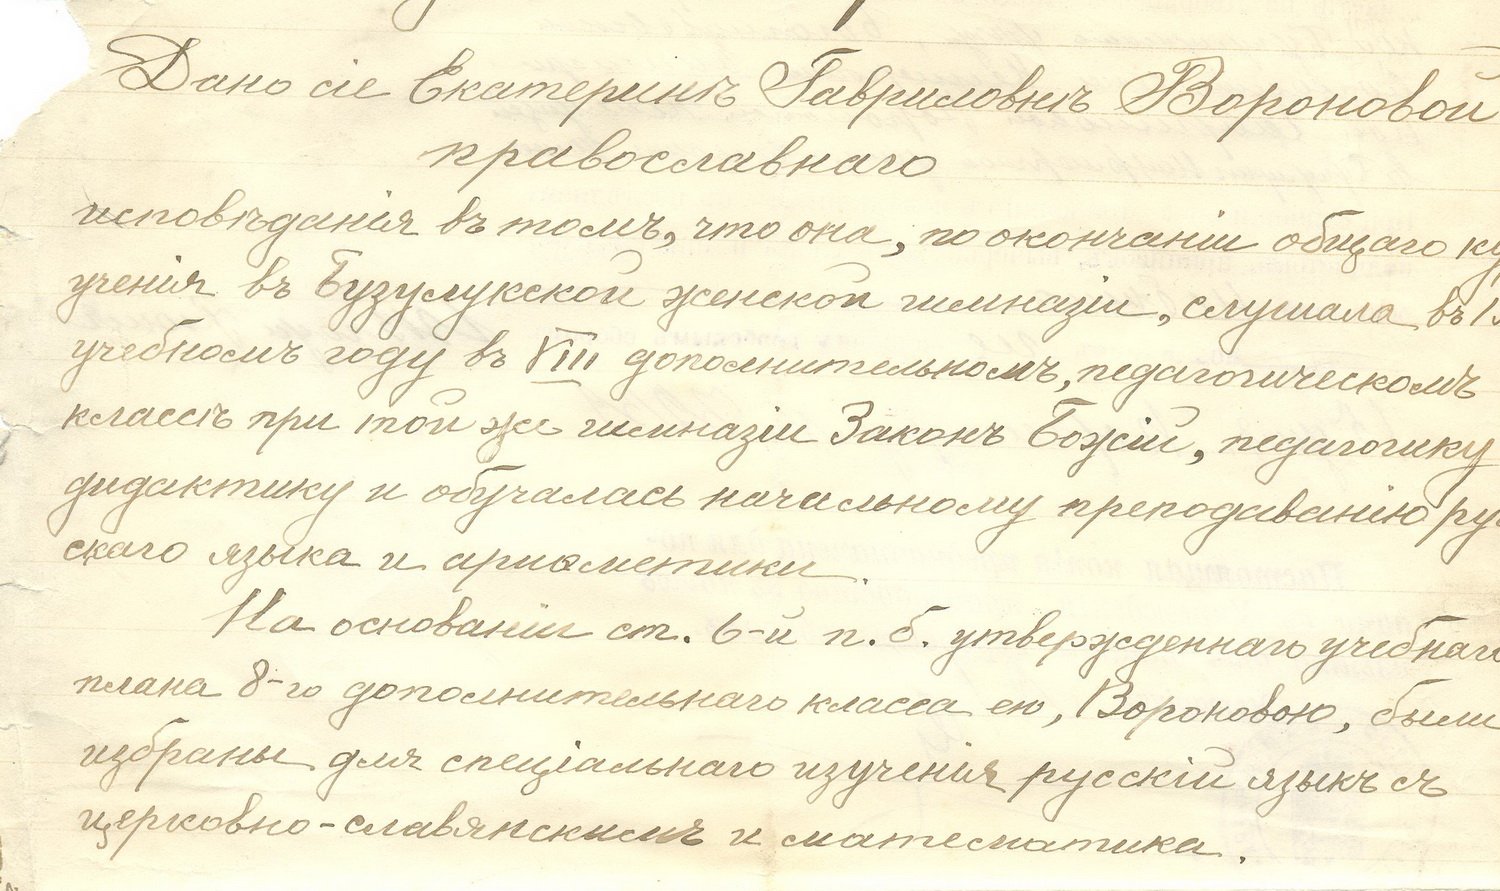 Дано сіе Екатеринѣ Гавриловнѣ Вороновой
православнаго
исповѣданія въ томъ, что она, по окончаніи общаго ку
ученія въ Бузулукской женской гимназіи, слушала въ 19
учебномъ году въ VIII дополнительномъ, педагогическомъ
классѣ при той же гимназіи Законъ Божій, педагогику
дидактику и обучалась начальному преподаванію рус
скаго языка и ариѳметики.
На основаніи ст. 6-й п. б. утвержденнаго учебнаго
плана 8-го дополнительнаго класса ею, Вороновою, были
избраны для спеціальнаго изученія русскій языкъ съ
церковно-славянскимъ и математика.